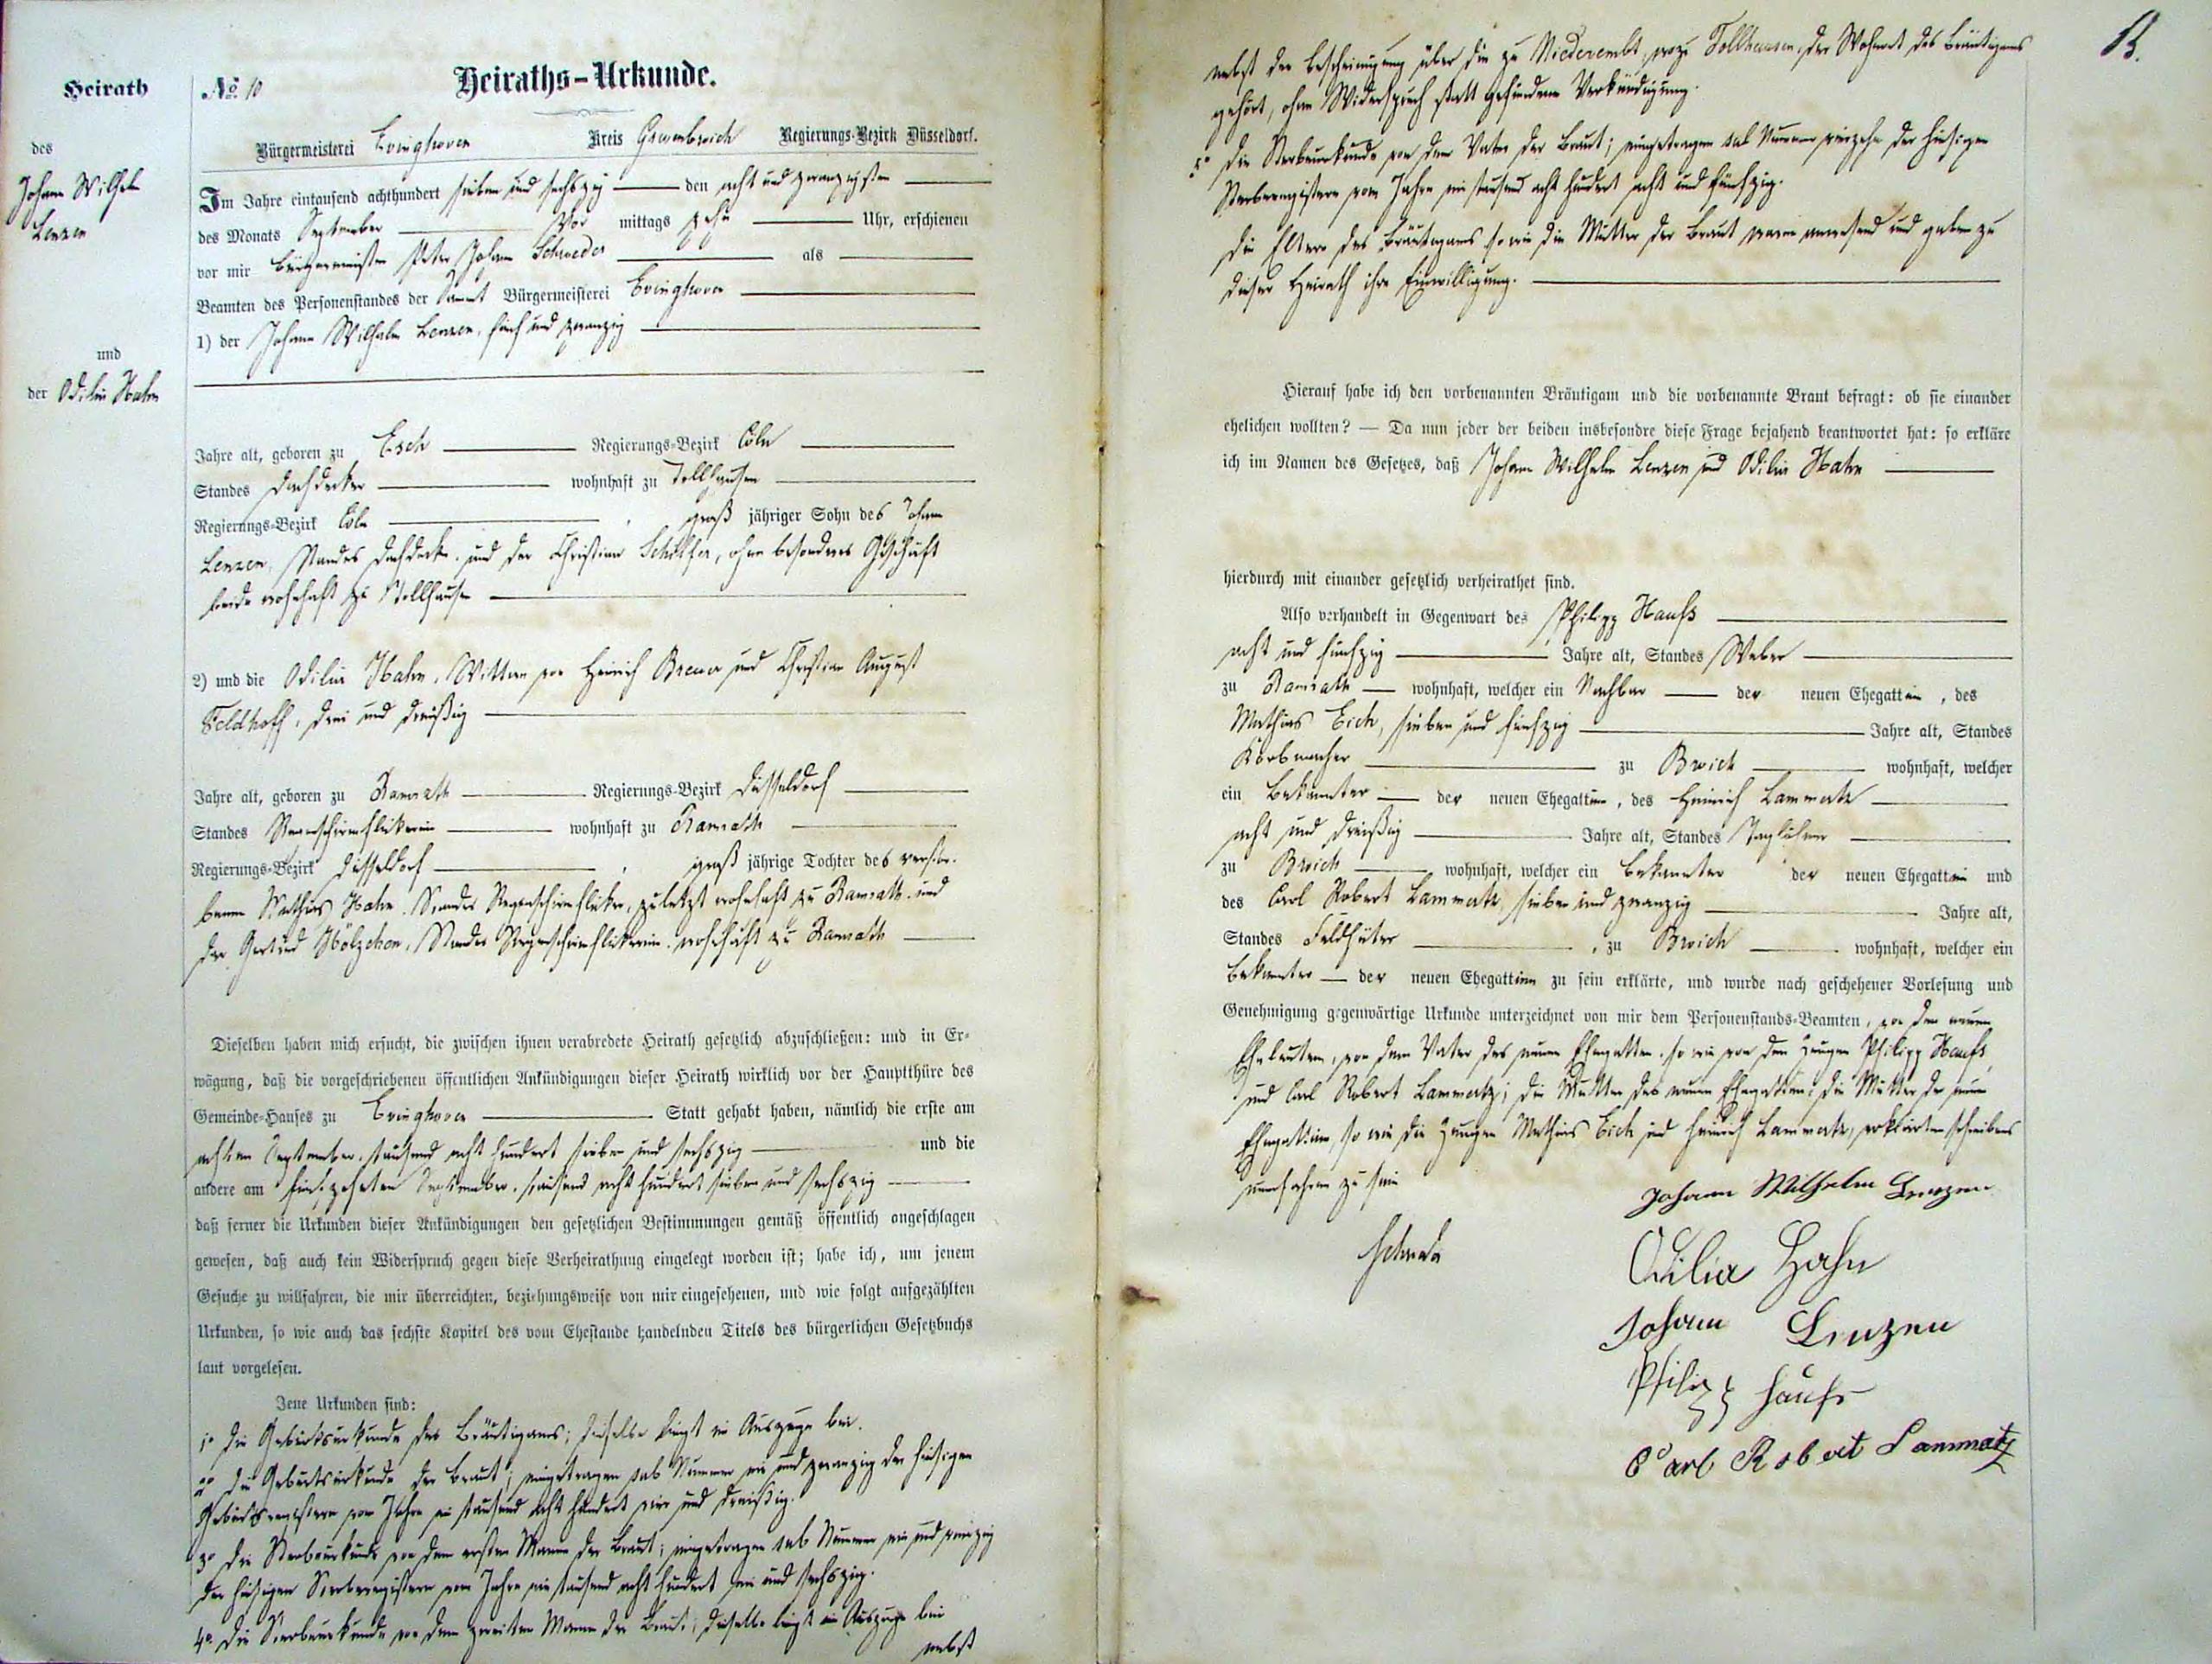 Heirath
des
Johann Wilhelm
Lenzen
und
der Odilia Hahn
No 10
Heiraths-Urkunde.
Bürgermeisterei Evinghoven Kreis Grevenbroich Regierungs-Bezirk Düsseldorf.
Im Jahre eintausend achthundert sieben und sechszig den acht und zwanzigsten
des Monats September Vor mittags zehn Uhr, erschienen
vor mir Bürgermeister Peter Johann Schroeder als
Beamten des Personenstandes der Samt Bürgermeisterei Evinghoven
1) der Johann Wilhelm Lenzen, fünf und zwanzig
Jahre alt, geboren zu Esch Regierungs-Bezirk Cöln
Standes Dachdecker wohnhaft zu Tollhausen
Regierungs-Bezirk Cöln, groß jähriger Sohn des Johann
Lenzen, Standes Dachdecker und der Christina Schiffer, ohne besonderes Geschäft
beide wohnhaft zu Tollhausen
2) und die Odilia Hahn, Wittwe von Heinrich Brewer und Christian August
Feldhoff, drei und dreißig
Jahre alt, geboren zu Ramrath Regierungs-Bezirk Düsseldorf
Standes Regenschirmflickerin wohnhaft zu Ramrath
Regierungs-Bezirk Düsseldorf, groß jährige Tochter des verstor-
benen Mathias Hahn, Standes Regenschirmflicker, zuletzt wohnhaft zu Ramrath und
der Gertrud Hölzchen, Standes Regenschirmflickerin wohnhaft zu Ramrath
Dieselben haben mich ersucht, die zwischen ihnen verabredete Heirath gesetzlich abzuschließen: und in Er-
wägung, daß die vorgeschriebenen öffentlichen Ankündigungen dieser Heirath wirklich vor der Hauptthüre des
Gemeinde-Hauses zu Evinghoven Statt gehabt haben, nämlich die erste am
achten September, tausend acht hundert sieben und sechszig und die
andere am fünfzehnten September, tausend acht hundert sieben und sechszig
daß ferner die Urkunden dieser Ankündigungen den gesetzlichen Bestimmungen gemäß öffentlich angeschlagen
gewesen, daß auch kein Widerspruch gegen diese Verheirathung eingelegt worden ist; habe ich, um jenem
Gesuche zu willfahren, die mir überreichten, beziehungsweise von mir eingesehenen, und wie folgt aufgezählten
Urkunden, so wie auch das sechste Kapitel des vom Ehestande handelnden Titels des bürgerlichen Gesetzbuchs
laut vorgelesen.
Jene Urkunden sind:
1o die Geburtsurkunde des Bräutigams; dieselbe liegt im Auszuge bei.
2o die Geburtsurkunde der Braut; eingetragen sub Nummer ein und zwanzig der hiesigen
Geburtsregistern vom Jahre ein tausend acht hundert vier und dreißig.
3o die Sterbeurkunde von dem ersten Manne der Braut; eingetragen sub Nummer ein und vierzig
der hiesigen Sterberegistern vom Jahre ein tausend acht hundert und sechszig.
4o die Sterbeurkunde von dem zweiten Manne der Braut; dieselbe liegt im Auszuge bei
nebst
13.
nebst der Bescheinigung über die zu Niederembt, wozu Tollhausen, der Wohnort des Bräutigams
gehört, ohne Widerspruch statt gefundene Verkündigung.
5o die Sterbeurkunde von dem Vater der Braut; eingetragen sub Nummer vierzehn der hiesigen
Sterberegistern vom Jahre ein tausend acht hundert acht und fünfzig.
Die Eltern des Bräutigams so wie die Mutter der Braut waren anwesend und gaben zu
dieser Heirath ihre Einwilligung.
Hierauf habe ich den vorbenannten Bräutigam und die vorbenannte Braut befragt: ob sie einander
ehelichen wollten? — Da nun jeder der beiden insbesondre diese Frage bejahend beantwortet hat: so erkläre
ich im Namen des Gesetzes, daß Johann Wilhelm Lenzen und Odilia Hahn
hierdurch mit einander gesetzlich verheirathet sind.
Also verhandelt in Gegenwart des Philipp Haufs
acht und fünfzig Jahre alt, Standes Weber
zu Ramrath wohnhaft, welcher ein Nachbar der neuen Ehegattin, des
Mathias Eich, sieben und fünfzig Jahre alt, Standes
Korbmacher zu Broich wohnhaft, welcher
ein Bekannter der neuen Ehegattin, des Heinrich Lammertz
acht und dreißig Jahre alt, Standes Taglöhner
zu Broich wohnhaft, welcher ein Bekannter der neuen Ehegattin und
des Carl Robert Lammertz, sieben und zwanzig Jahre alt,
Standes Feldhüter, zu Broich wohnhaft, welcher ein
Bekannter der neuen Ehegattinn zu sein erklärte, und wurde nach geschehener Vorlesung und
Genehmigung gegenwärtige Urkunde unterzeichnet von mir dem Personenstands-Beamten, von den neuen
Eheleuten, von dem Vater des neuen Ehegatten, so wie von den Zeugen Philipp Haufs
und Carl Robert Lammertz; die Mutter des neuen Ehegatten, die Mutter der neuen
Ehegattin, so wie die Zeugen Mathias Eich und Heinrich Lammertz, erklärten schreibens
unerfahren zu sein
Johann Wilhelm Lenzen
Schroeder
Odilia Hahn
Johann Lenzen
Philipp Haufs
Carl Robert Lammertz